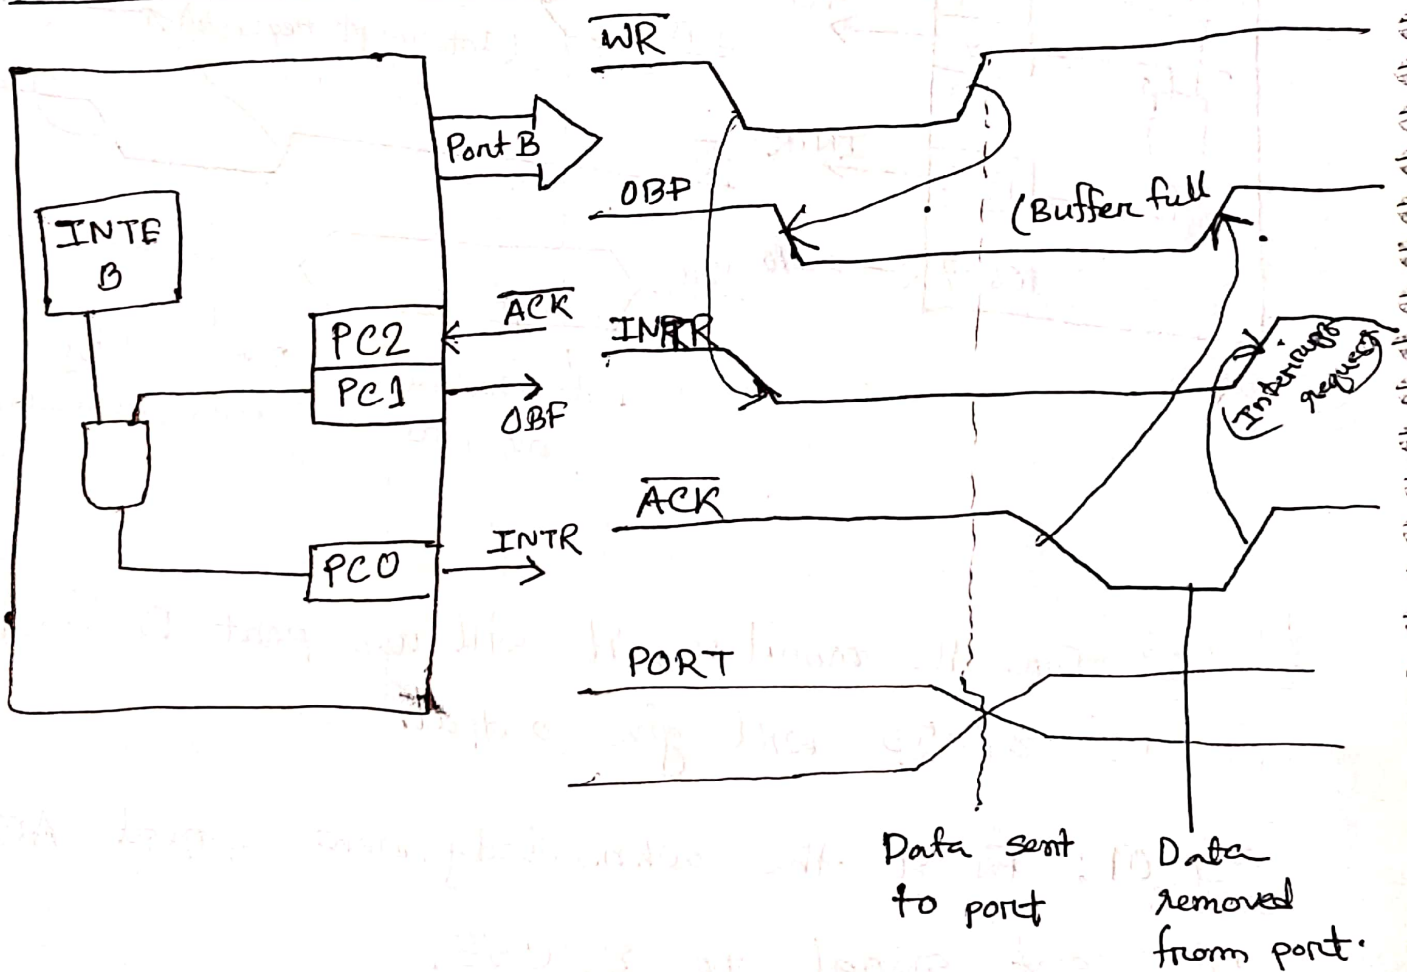 INTE
B
Port B
PC2
PC1
PC0
ACK
OBF
INTR
WR
OBP
(Buffer full
INTR
(Interrupt
request)
ACK
PORT
Data sent
to port
Data
removed
from port.